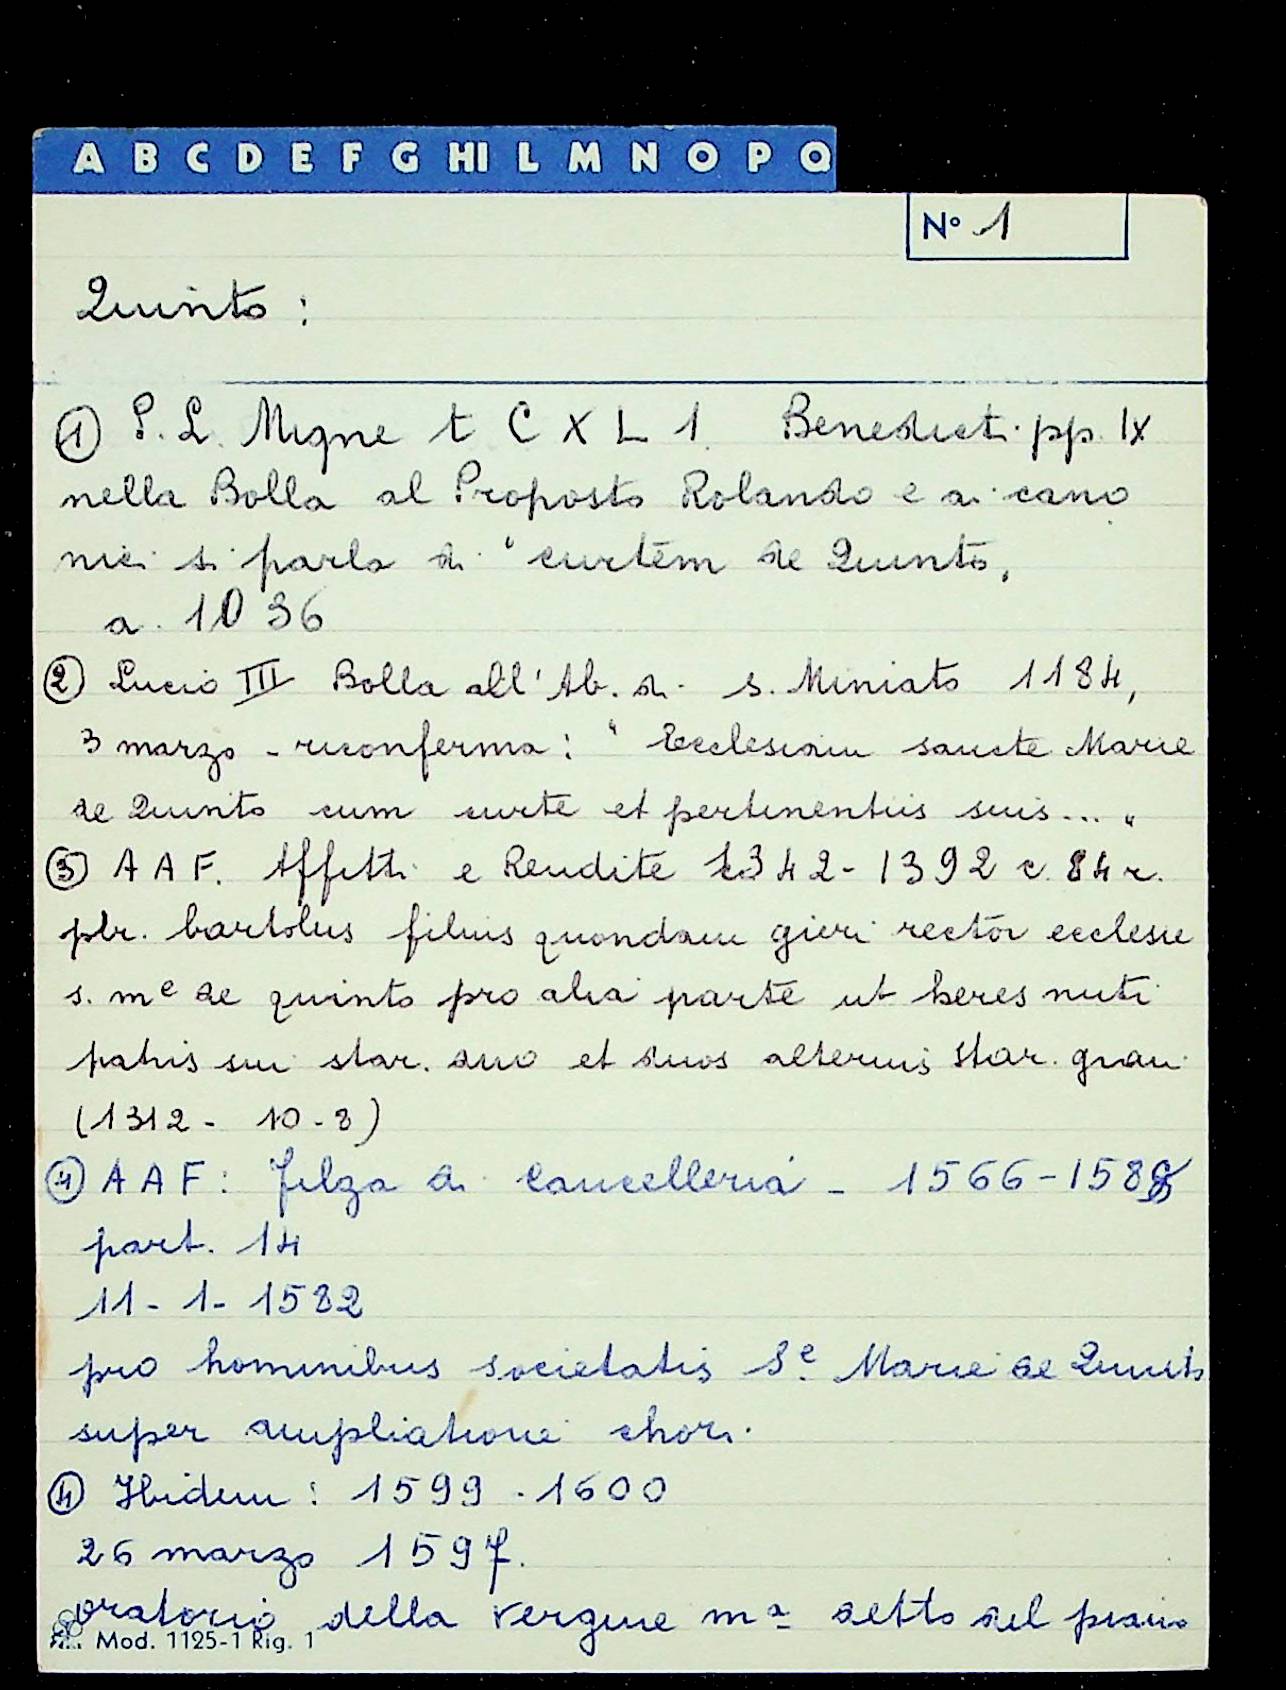 A B C D E F G HI L M N O P Q
N° 1
Quinto :
① P. L. Migne t C X L 1. Benedict. pp. IX
nella Bolla al Proposto Rolando e ai cano
nici si parla di "curtem de Quinto,
a. 1036
② Lucio III Bolla all'Ab. di S. Miniato 1184,
3 marzo - riconferma : "Ecclesiam sancte Marie
de Quinto cum curte et pertinentiis suis... "
③ A A F. Affitti e Rendite 1342-1392 c. 84 r.
pbr. bartolus filius quondam gieri rector ecclesie
s. mᵉ de quinto pro alia parte ut heres nuti
patris sui star. duo et duos alterius star. grani
(1312 - 10 - 8)
④ A A F : Filza di Cancelleria - 1566-1588
part. 14
11 - 1 - 1582
pro hominibus societatis Sᵉ. Marie de Quinto
super ampliatione chori.
④ Ibidem : 1599 - 1600
26 marzo 1597.
oratorio della Vergine mᵃ detto del piano
Mod. 1125-1 Rig. 1